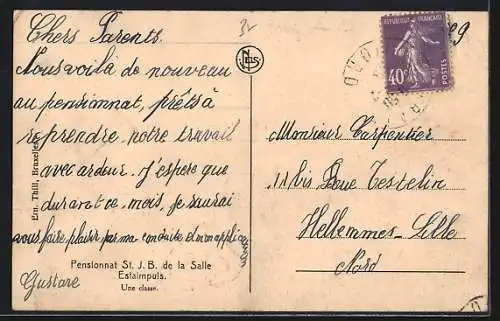 Chers Parents.
Nous voilà de nouveau
au pensionnat, prêts à
reprendre notre travail
avec ardeur. J'espère que
durant ce mois, je saurai
vous faire plaisir par ma conduite et mon application
Gustave
Pensionnat St. J. B. de la Salle
Estaimpuis.
Une classe.
Ern. Thill, Bruxelles
NELS
REPUBLIQUE FRANÇAISE
40c
POSTES
Monsieur Carpentier
11 bis Rue Testelin
Hellemmes-Lille
Nord